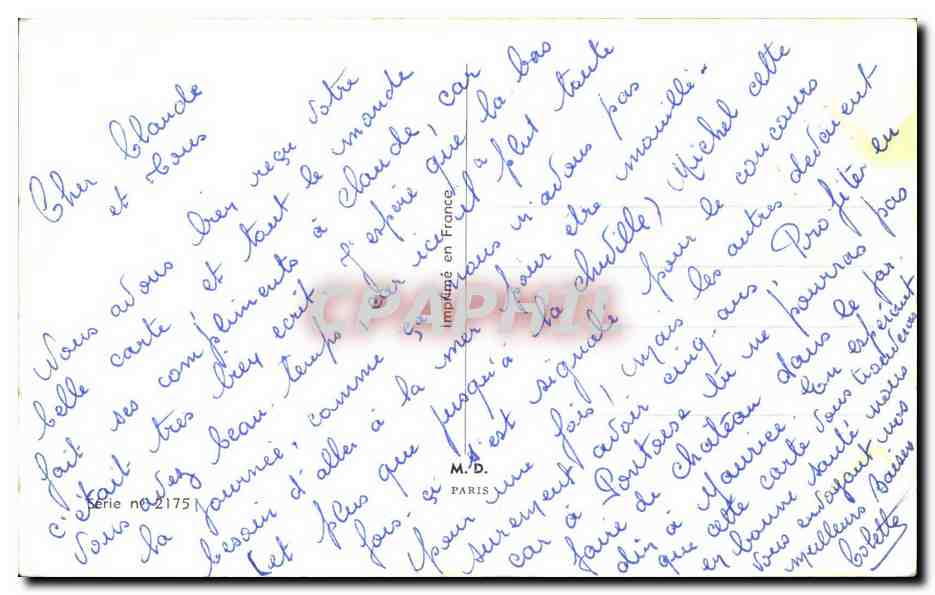 Cher Claude
et tous
Nous avons bien reçu votre
belle carte et tout le monde
fait ses compliments à Claude, car
c'était très bien écrit. J'espère que la bas
vous avez beau temps car ici il a plut toute
la journée, comme ça nous n'avons pas
besoin d'aller à la mer pour être mouillé.
(et plus que jusqu'à la cheville) Michel cette
fois-ci s'est signalé pour le concours
(pour une fois, mais les autres devaient
surement avoir cinq ans. Profiter en
car à Pontoise tu ne pourras pas
faire de chateau dans le jar
din à Maurice. En espérant
que cette carte vous trouvera
en bonne santé nous
vous envoyant nos
meilleurs baisers
Colette
Imprimé en France
M. D.
PARIS
Série n° 2175
CPAPHIL